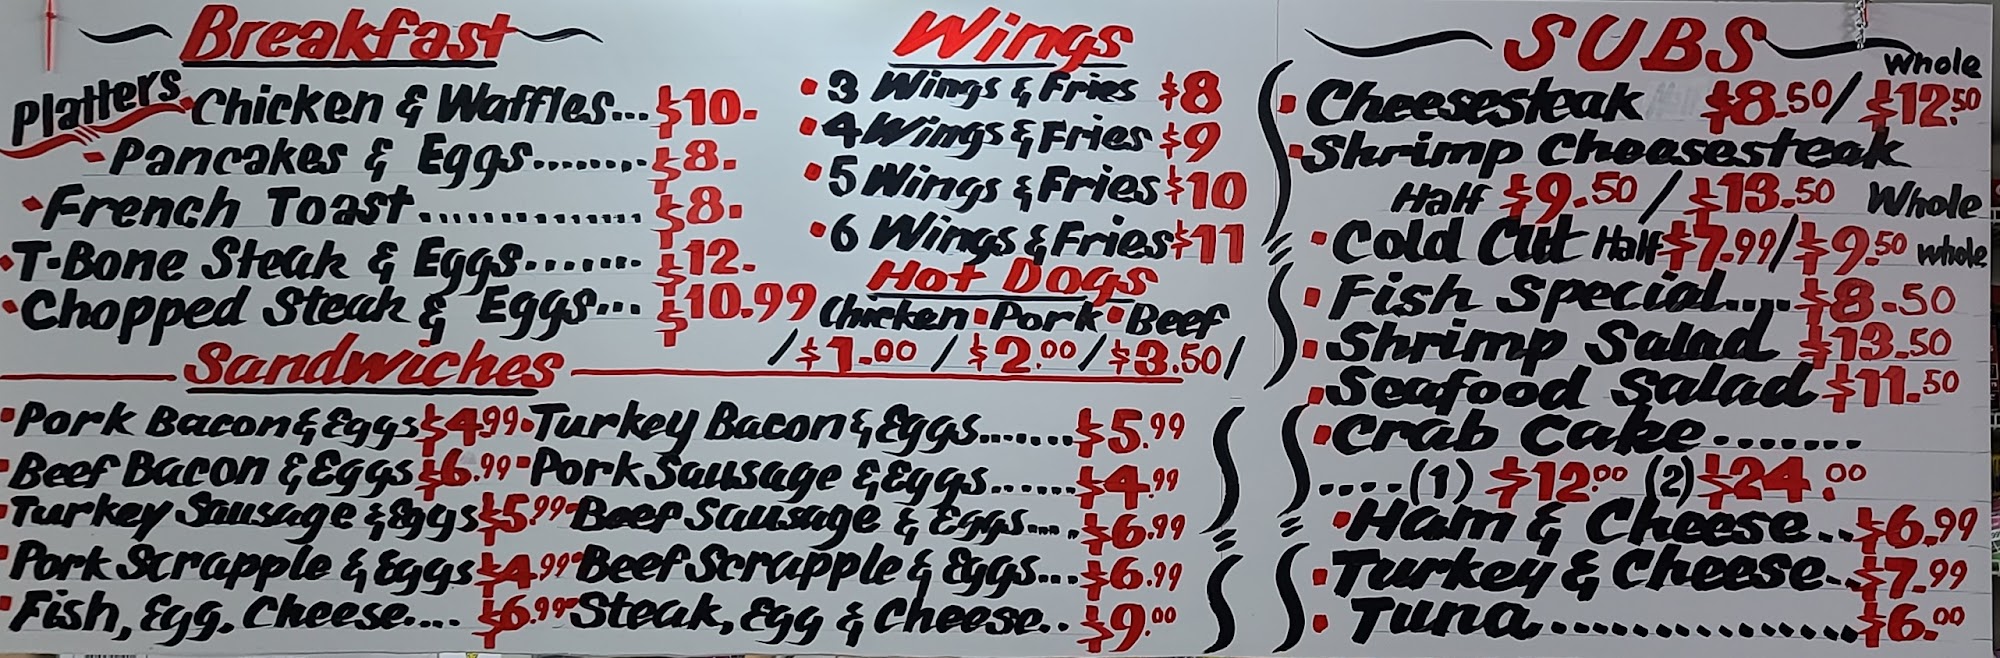 Breakfast
Platters
Chicken & Waffles... $10.
Pancakes & Eggs........ $8.
French Toast.............. $8.
T-Bone Steak & Eggs....... $12.
Chopped Steak & Eggs... $10.99
Wings
3 Wings & Fries $8
4 Wings & Fries $9
5 Wings & Fries $10
6 Wings & Fries $11
Hot Dogs
Chicken • Pork • Beef
/ $1.00 / $2.00 / $3.50 /
Sandwiches
Pork Bacon & Eggs $4.99
Beef Bacon & Eggs $6.99
Turkey Sausage & Eggs $5.99
Pork Scrapple & Eggs $4.99
Fish, Egg, Cheese.... $6.99
Turkey Bacon & Eggs....... $5.99
Pork Sausage & Eggs...... $4.99
Beef Sausage & Eggs.... $6.99
Beef Scrapple & Eggs... $6.99
Steak, Egg & Cheese.. $9.00
SUBS
Whole
Cheesesteak $8.50 / $12.50
Shrimp Cheesesteak
Half $9.50 / $13.50 Whole
Cold Cut Half $7.99 / $9.50 whole
Fish Special.... $8.50
Shrimp Salad $13.50
Seafood Salad $11.50
Crab Cake.......
....(1) $12.00 (2) $24.00
Ham & Cheese.. $6.99
Turkey & Cheese.. $7.99
Tuna................ $6.00